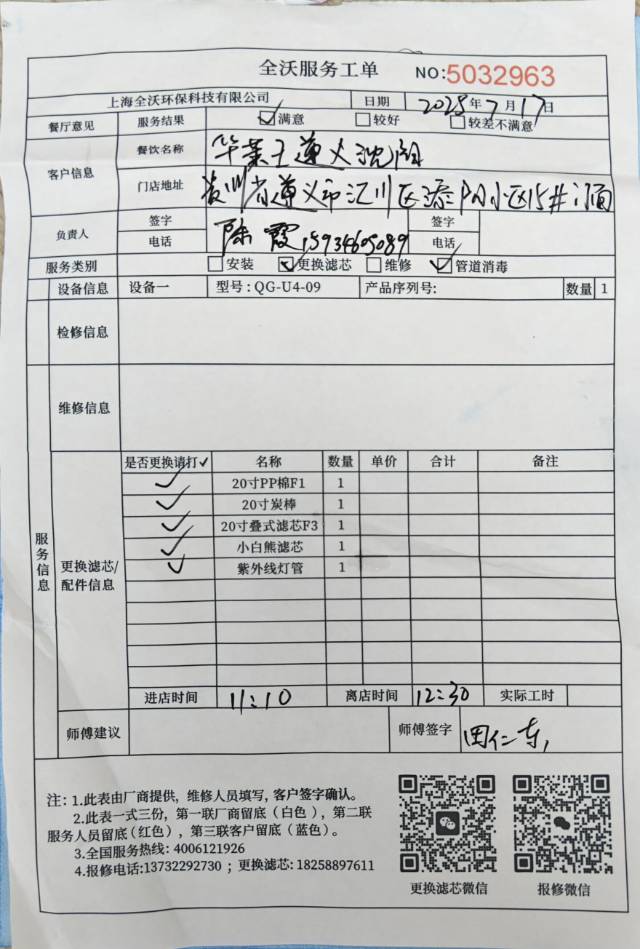 全沃服务工单 NO:5032963
上海全沃环保科技有限公司 日期 2025年7月17日
餐厅意见 服务结果 满意 较好 较差不满意
客户信息 餐饮名称 华莱士遵义沈阁
门店地址 贵州省遵义市汇川区 小区15#门面
负责人 签字 陈霞 签字
电话 15934605089 电话
服务类别 安装 更换滤芯 维修 管道消毒
设备信息 设备一 型号: QG-U4-09 产品序列号: 数量 1
检修信息
维修信息
服务信息
更换滤芯/配件信息
是否更换请打✓ 名称 数量 单价 合计 备注
✓ 20寸PP棉F1 1
✓ 20寸炭棒 1
✓ 20寸叠式滤芯F3 1
✓ 小白熊滤芯 1
✓ 紫外线灯管 1
进店时间 11:10 离店时间 12:30 实际工时
师傅建议 师傅签字 田仁
注: 1.此表由厂商提供，维修人员填写，客户签字确认。
2.此表一式三份，第一联厂商留底（白色），第二联
服务人员留底(红色)，第三联客户留底（蓝色）。
3.全国服务热线: 4006121926
4.报修电话:13732292730 ; 更换滤芯: 18258897611
更换滤芯微信 报修微信